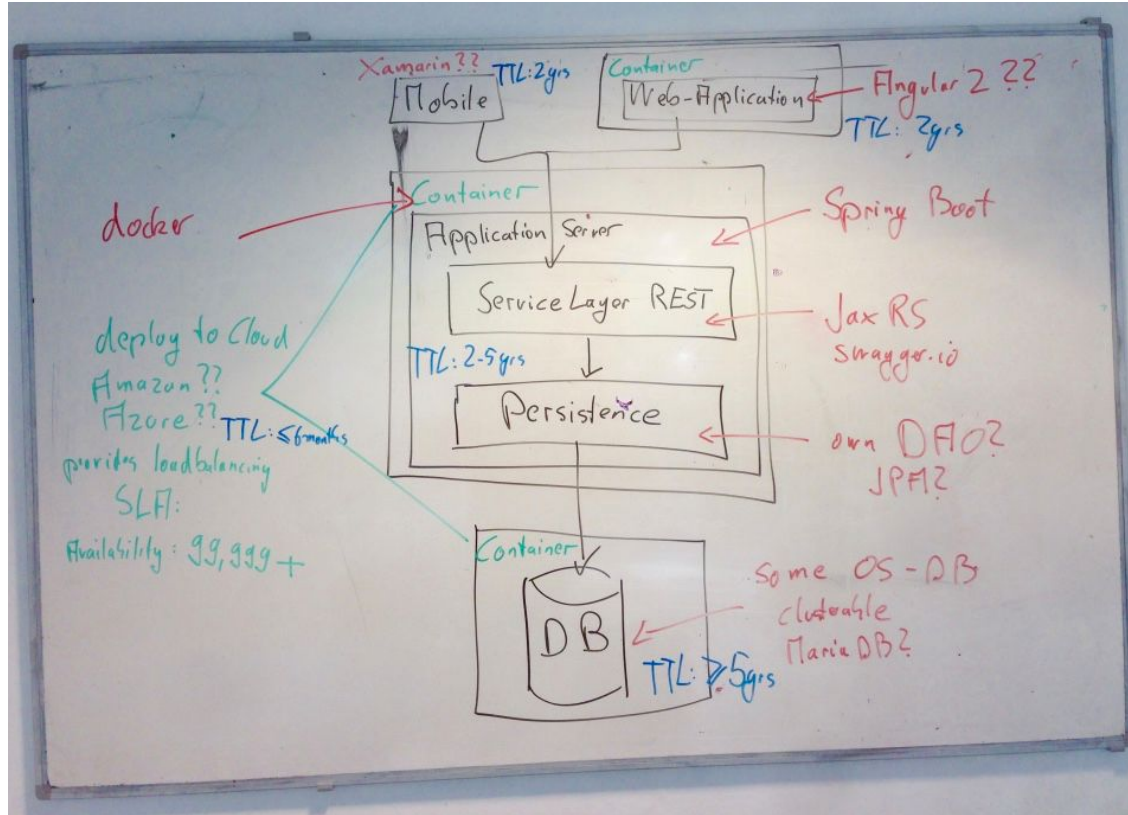 Xamarin??
TTL: 2yrs
Mobile
Container
Web-Application
Angular 2 ??
TTL: 2yrs
docker
Container
Application Server
Spring Boot
Service Layer REST
Jax RS
swagger.io
TTL: 2-5yrs
Persistence
own DAO?
JPA?
deploy to Cloud
Amazon??
Azure??
TTL: ≤6months
provides loadbalancing
SLA:
Availability: 99,999+
Container
DB
TTL: ≥5yrs
some OS-DB
clusterable
MariaDB?